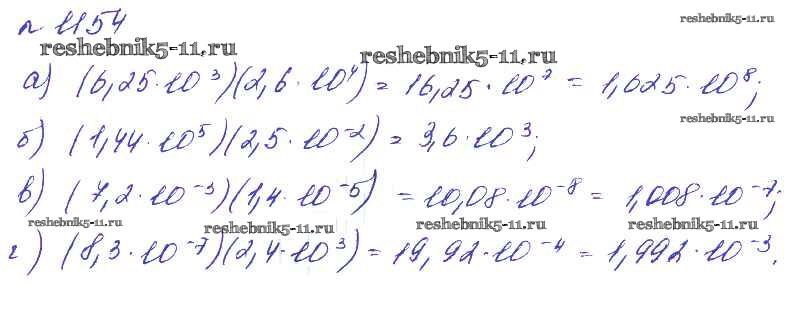 № 1154
reshebnik5-11.ru
reshebnik5-11.ru
reshebnik5-11.ru
а) (6,25·10³)(2,6·10⁴) = 16,25·10⁷ = 1,625·10⁸;
reshebnik5-11.ru
б) (1,44·10⁵)(2,5·10⁻²) = 3,6·10³;
в) (7,2·10⁻³)(1,4·10⁻⁵) = 10,08·10⁻⁸ = 1,008·10⁻⁷;
reshebnik5-11.ru
reshebnik5-11.ru
reshebnik5-11.ru
reshebnik5-11.ru
г) (8,3·10⁻⁷)(2,4·10³) = 19,92·10⁻⁴ = 1,992·10⁻³.